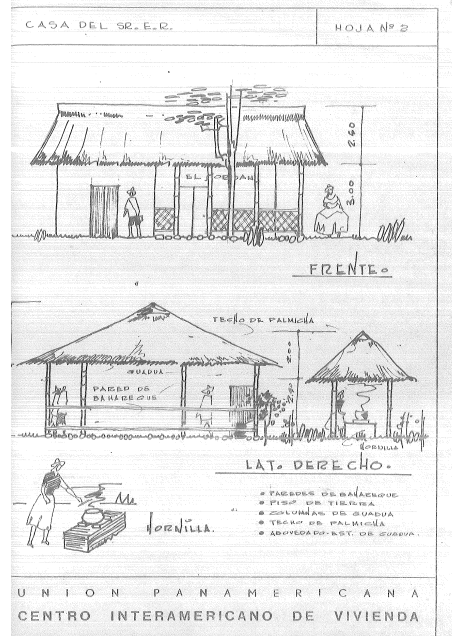 CASA DEL SR. E. R.
HOJA Nº 2
2.60
3.00
FRENTE.
TECHO DE PALMICHA
GUADUA
PARED DE
BAHAREQUE
HORNILLA
LAT. DERECHO.
HORNILLA.
• PAREDES DE BAHAREQUE
• PISO DE TIERRA
• COLUMNAS DE GUADUA
• TECHO DE PALMICHA
• ABOVEDADO-EST. DE GUADUA.
UNION PANAMERICANA
CENTRO INTERAMERICANO DE VIVIENDA